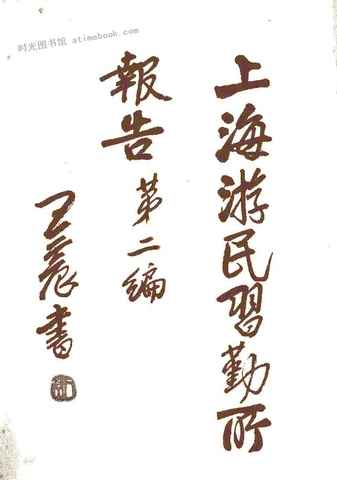 时光图书馆 atimebook.com
上海游民習勤所
報告 第二編
王震書